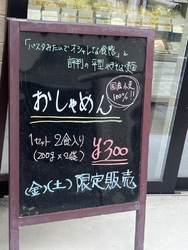 「パスタみたいでオシャレな食感」と
評判の平型やきそば麺
国産小麦
100%!!
おしゃめん
1セット 2食入り
(200g×2袋)
¥300
(金)(土)限定販売